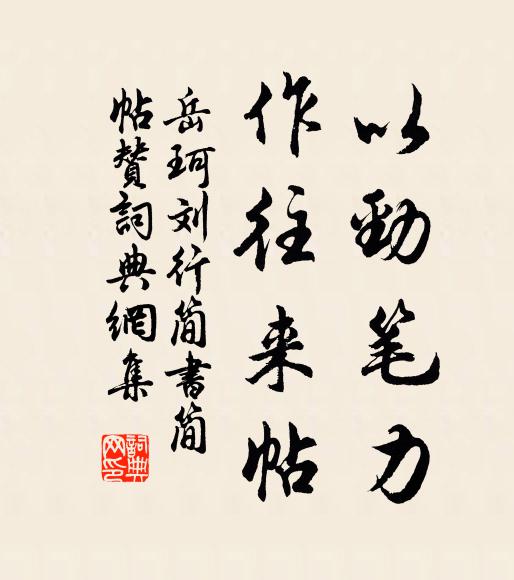 以勁笔力
作往来帖
岳珂刘行简書简
帖赞詞典網集
詞典网印